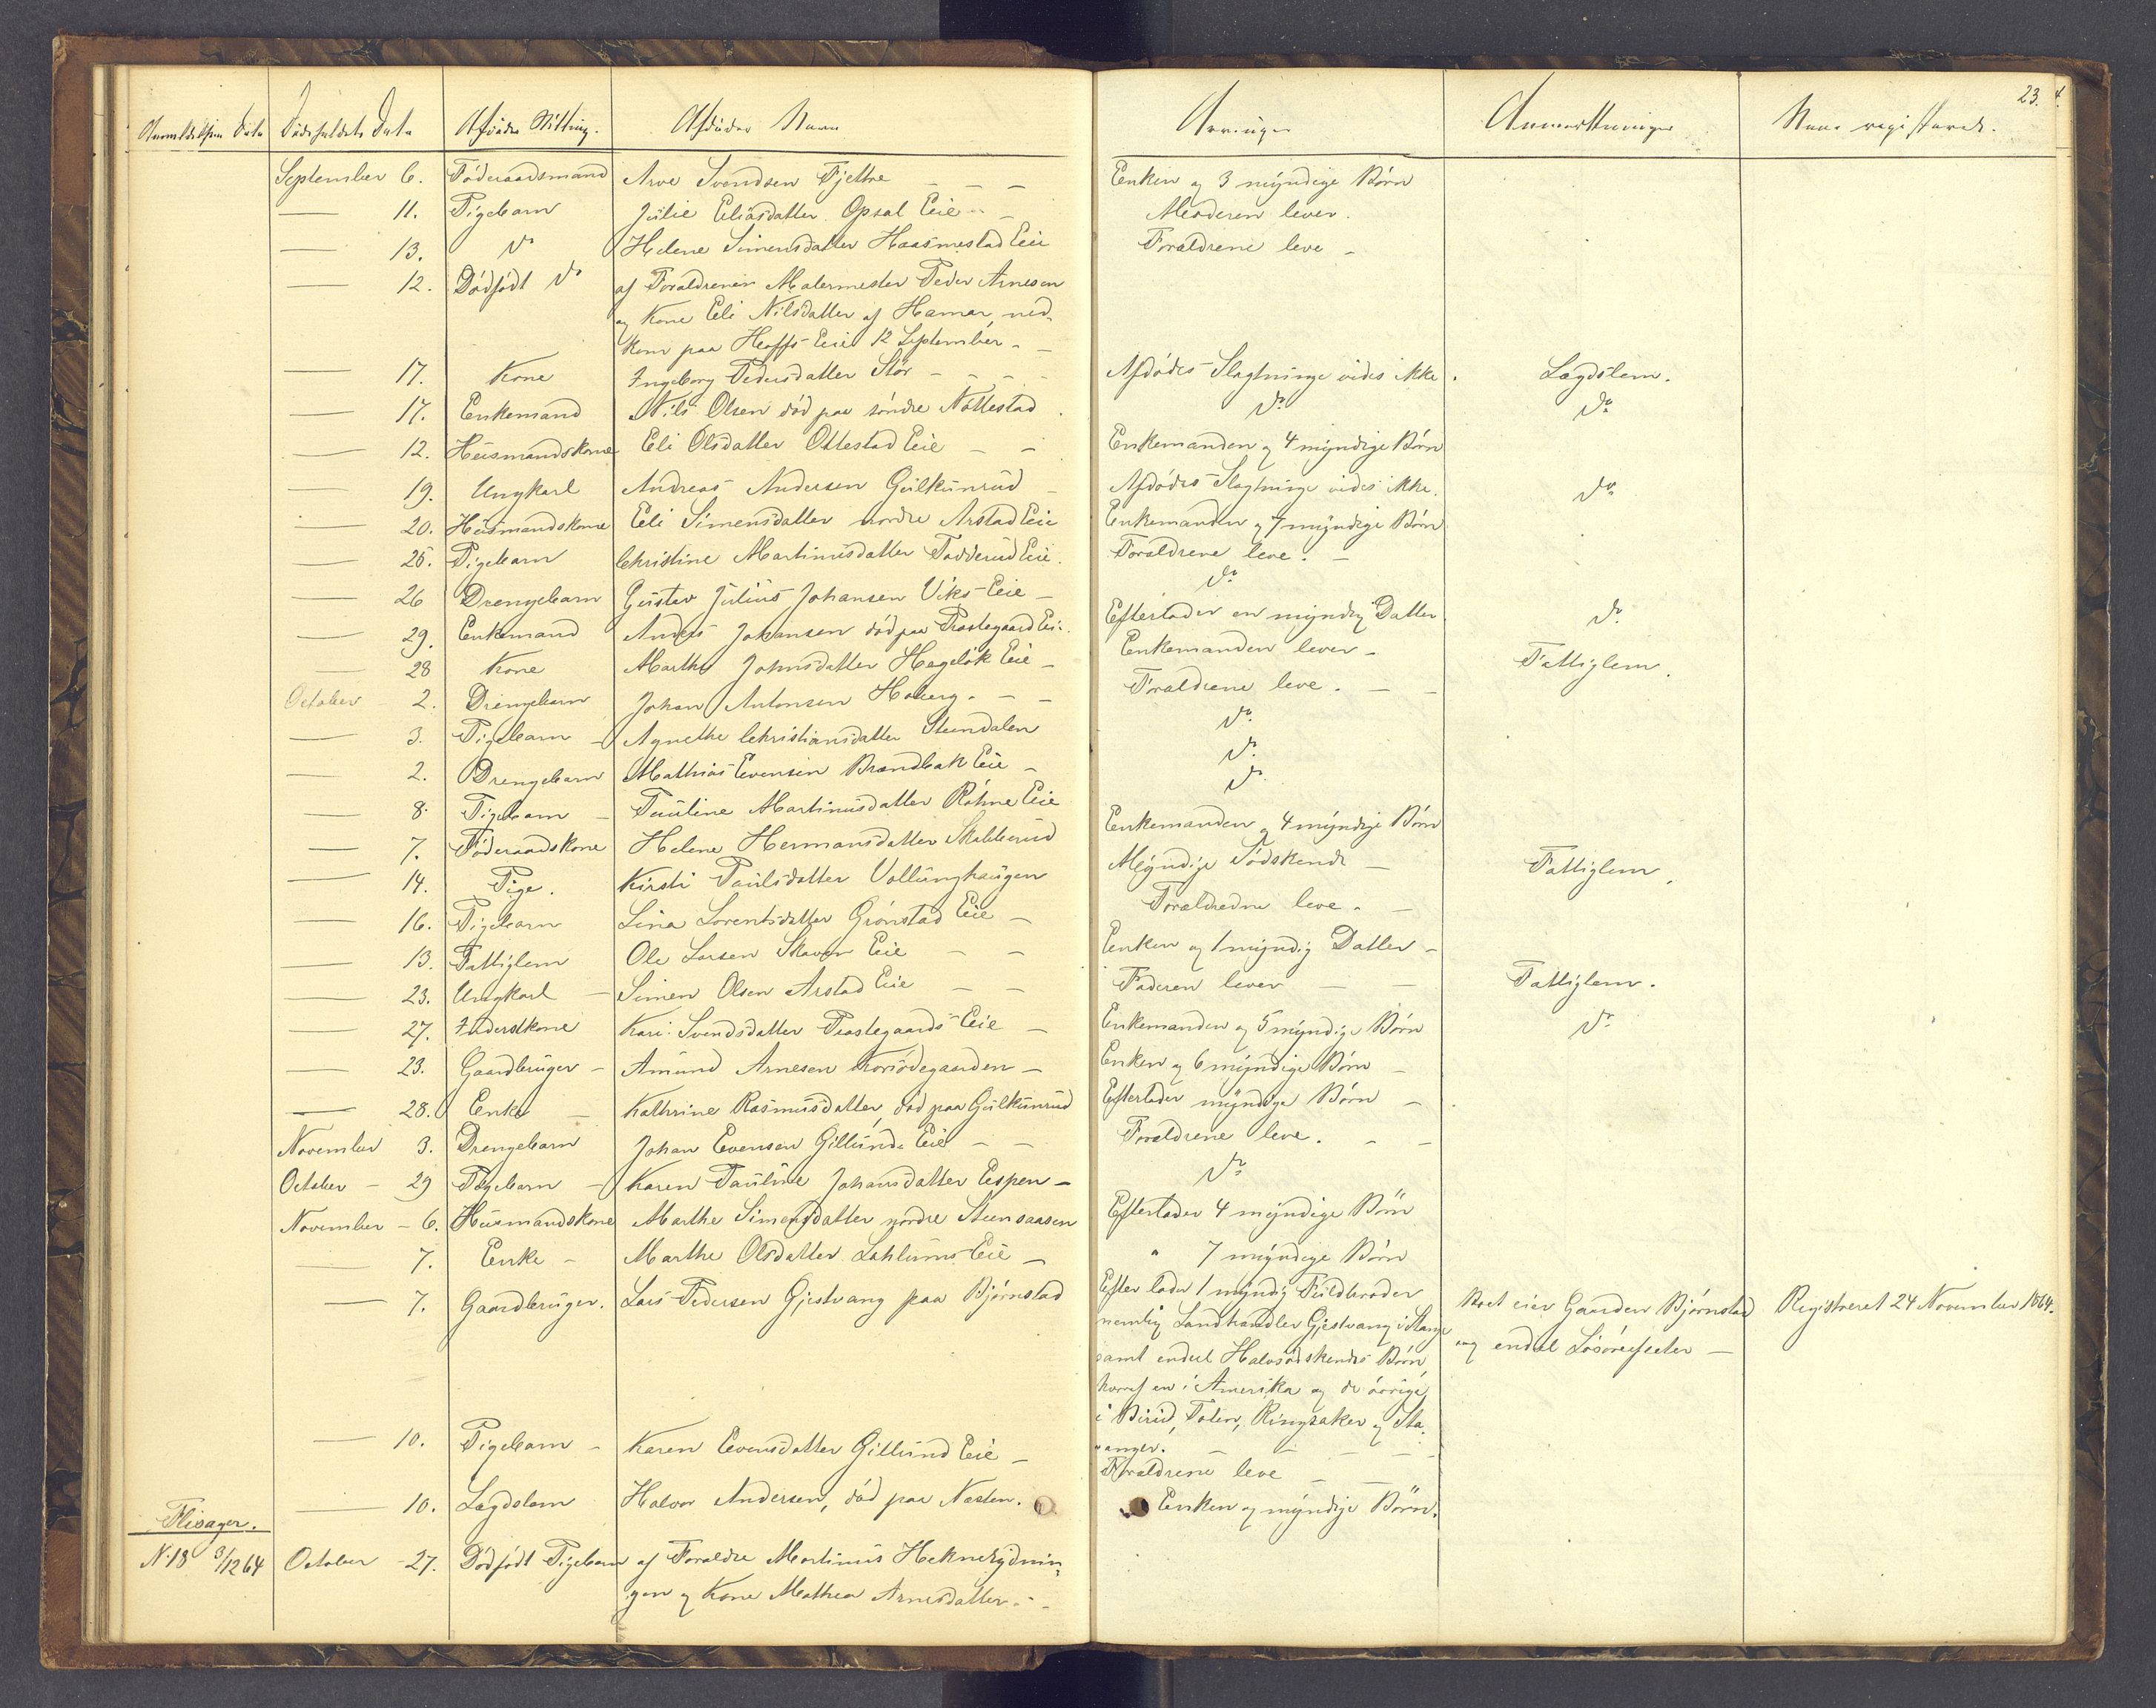 23.
Anmeldelsens Data Dødsfaldets Data Afdødes Stilling. Afdødes Navn Arvinger Anmerkninger Naar registeret.
September 6. Föderaadsmand Arve Svendsen Fjettre – – – Enken og 3 myndige Börn
— 11. Pigebarn Julie Eliasdatter Opsal Eie – Moderen lever.
— 13. do Helene Simensdatter Haasmestad Eie Forældrene leve –
— 12. Dödfödt do af Forældrene Malermester Peder Arnesen
og Kone Eli Nilsdatter af Hamar, ned-
kom paa Hoffs Eie 12 September. –
— 17. Kone Ingeborg Pedersdatter Stör – – – Afdödes Slægtninge vides ikke. Lægdslem.
— 17. Enkemand Nils Olsen död paa söndre Nöttestad. do do
— 12. Huusmandskone Eli Olsdatter Ottestad Eie – – Enkemanden og 4 myndige Börn
— 19. Ungkarl Andreas Andersen Gulkunrud – Afdödes Slægtninge vides ikke. do
— 20. Huusmandskone Eli Simensdatter nordre Arstad Eie Enkemanden og 7 myndige Börn
— 25. Pigebarn Christine Martinusdatter Fodderud Eie. Forældrene leve. –
— 26 Drengebarn Gustav Julius Johansen Viks Eie – do
— 29. Enkemand Anders Johansen död paa Præstegaard Ei. Efterlader en myndig Datter. do
— 28 Kone Marthe Johnsdatter Hegelök Eie – Enkemanden lever – Fattiglem.
October 2. Drengebarn Johan Antonsen Hoberg. – – Forældrene leve. – –
— 3. Pigebarn – Agnethe Christiansdatter Steendalen do
— 2. Drengebarn Mathias Evensen Brændbak Eie – do
— 8. Pigebarn – Pauline Martinusdatter Röhne Eie do
— 7. Föderaadskone Helene Hermansdatter Skabberud Enkemanden og 4 myndige Börn
— 14. Pige. Kirsti Paulsdatter Vollunghaugen Myndige Södskende – Fattiglem.
— 16. Pigebarn Lina Lorentsdatter Grönstad Eie – Forældrene leve. –
— 13. Fattiglem Ole Larsen Skaven Eie – – Enken og 1 myndig Datter –
— 23. Ungkarl – Simen Olsen Arstad Eie – – Faderen lever – – Fattiglem.
— 27. Inderstkone Kari Svendsdatter Præstegaards Eie – Enkemanden og 5 myndige Börn do
— 23. Gaardbruger – Amund Arnesen Korsödegaarden – Enken og 6 myndige Börn –
— 28. Enke – Kathrine Rasmusdatter, död paa Gulkunrud Efterlader myndige Börn –
November 3. Drengebarn Johan Evensen Gillund Eie – – Forældrene leve. – –
October – 29 Pigebarn – Karen Pauline Johansdatter Espen – do
November – 6. Huusmandskone Marthe Simensdatter nordre Steensaasen Efterlader 4 myndige Börn
— 7. Enke – Marthe Olsdatter Lahlums Eie – " 7 myndige Börn
— 7. Gaardbruger. Lars Pedersen Gjestvang paa Bjørnstad Efterlader 1 myndig Fuldbroder Boet eier Gaarden Bjørnstad Registreret 24 November 1864.
nemlig Landhandler Gjestvang i Stange og endel Lösöreeffecter –
samt endeel Halvsödskendes Börn
hvoraf en i Amerika og de övrige
i Birid, Toten, Ringsaker og Sta-
vanger. – – – –
— 10. Pigebarn – Karen Evensdatter Gillund Eie – Forældrene leve – –
— 10. Lægdslem Halvor Andersen, död paa Næsten. Enken og myndige Börn.
Flisager.
N. 18 3/12 64 October – 27. Dödfödt Pigebarn af Forældre Martinus Heknerydnin-
gen og Kone Mathea Arnesdatter. –